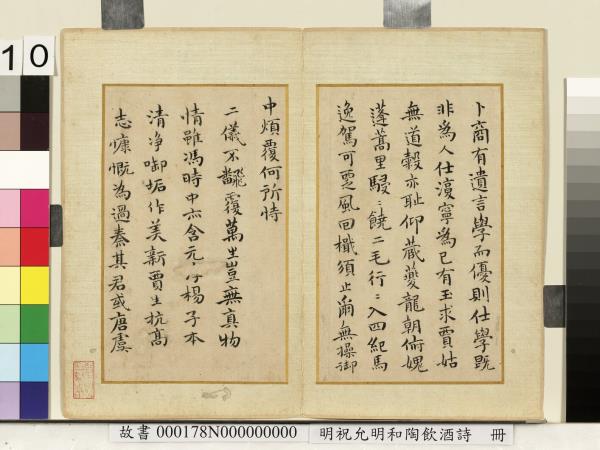 卜商有遺言學而優則仕學既
非為人仕寧為己有玉求賈姑
無道穀亦恥仰蔵夔龍朝俯媿
蓬蒿里駸〻饒二毛行〻入四紀馬
逸駕可風回檝須止爾無操御
中煩覆何所恃
二儀不飜覆萬生豈無真物
情雖馮時中亦含元〻楊子本
清净啣垢作美新賈生抗高
志慷慨為過秦其君或唐虞
10
故書 000178N000000000 明祝允明和陶飲酒詩 冊